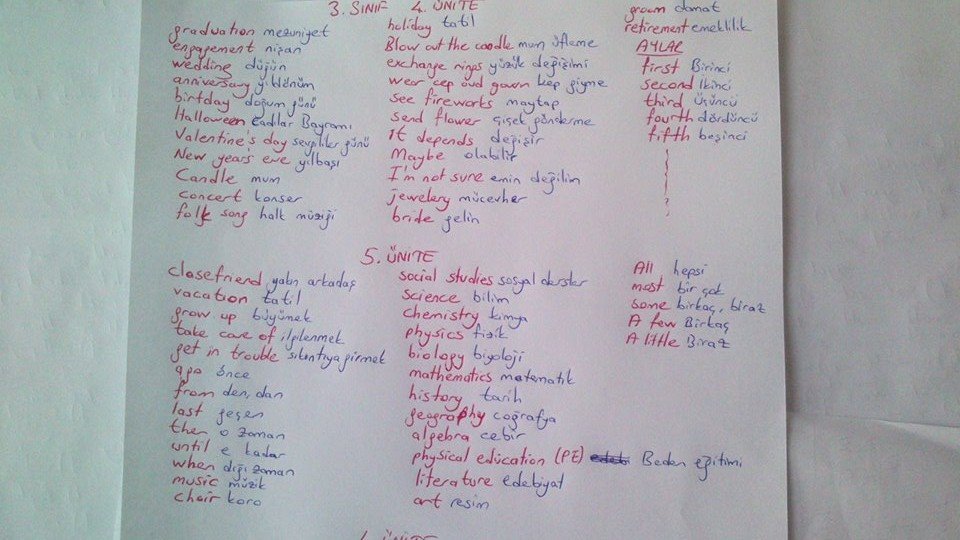 3. SINIF 4. ÜNİTE
graduation mezuniyet
engagement nişan
wedding düğün
anniversary yıldönüm
birtday doğum günü
Halloween cadılar Bayramı
Valentine's day sevgililer günü
New year's eve yılbaşı
Candle mum
concert konser
folk song halk müziği
holiday tatil
Blow out the candle mum üfleme
exchange rings yüzük değişimi
wear cep oud gown kep giyme
see fireworks maytap
send flower çiçek gönderme
It depends değişir
Maybe olabilir
I'm not sure emin değilim
jewelery mücevher
bride gelin
groum damat
retirement emeklilik
AYLAR
first Birinci
second İkinci
third Üçüncü
fourth dördüncü
fifth beşinci
5. ÜNİTE
close friend yakın arkadaş
vacation tatil
grow up büyümek
take care of ilgilenmek
get in trouble sıkıntıya girmek
ago önce
from den, dan
last geçen
then o zaman
until e kadar
when diği zaman
music müzik
choir koro
social studies sosyal dersler
science bilim
chemistry kimya
physics fizik
biology biyoloji
mathematics matematik
history tarih
geography coğrafya
algebra cebir
physical education (PE) Beden eğitimi
literature edebiyat
art resim
All hepsi
most bir çok
some birkaç, biraz
A few Birkaç
A little Biraz